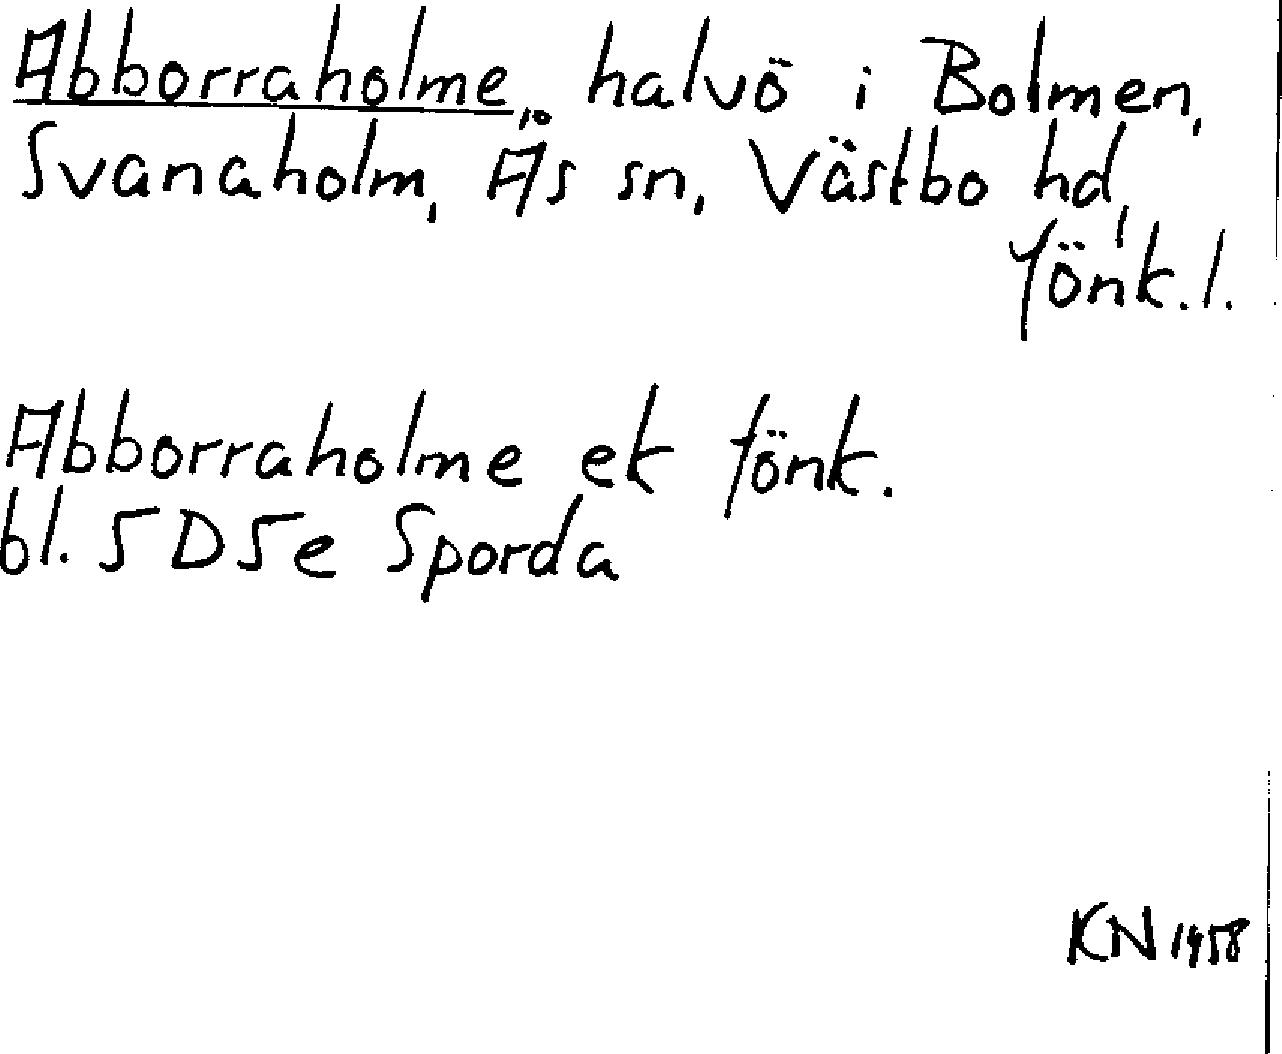 Abborraholme, halvö i Bolmen,
Svanaholm, Ås sn, Västbo hd,
Jönk. l.
Abborraholme ek Jönk.
bl. 5D5e Sporda
KN 1958